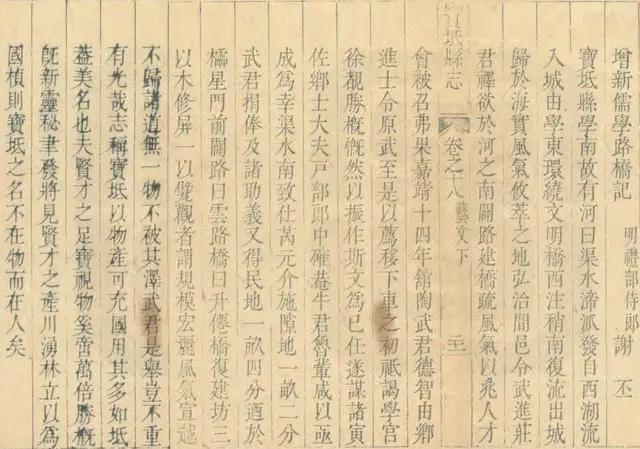 增新儒學路橋記
明禮部侍郎謝丕
寶坻縣學南故有河曰渠水渧派發自西湖流
入城由學東環繞文明橋西注稍南復流出城
歸於海實風氣攸萃之地弘治間邑令武進莊
君襗欲於河之南闢路建橋疏風氣以兆人才
寶坻縣志
卷之十八
藝文下
二十一
會被召弗果嘉靖十四年舘陶武君德智由鄉
進士令原武至是以薦移下車之初祇謁學宮
徐覩勝槪慨然以振作斯文為已任遂謀諸寅
佐鄉士大夫戸部郎中確菴牛君魯輩咸以亟
成爲幸渠水南致仕芮元介施隙地一畝二分
武君捐俸及諸助義又得民地一畝四分迺於
櫺星門前闢路曰雲路橋曰升僊橋復建坊三
以木修屏一以甓觀者謂規模宏麗風氣宣越
不歸諸道無一物不被其澤武君是舉豈不重
有光哉志稱寶坻以物產可充國用其多如坻
葢美名也夫賢才之足寶視物奚啻萬倍勝槪
旣新靈秘聿發將見賢才之產川湧林立以爲
國楨則寶坻之名不在物而在人矣